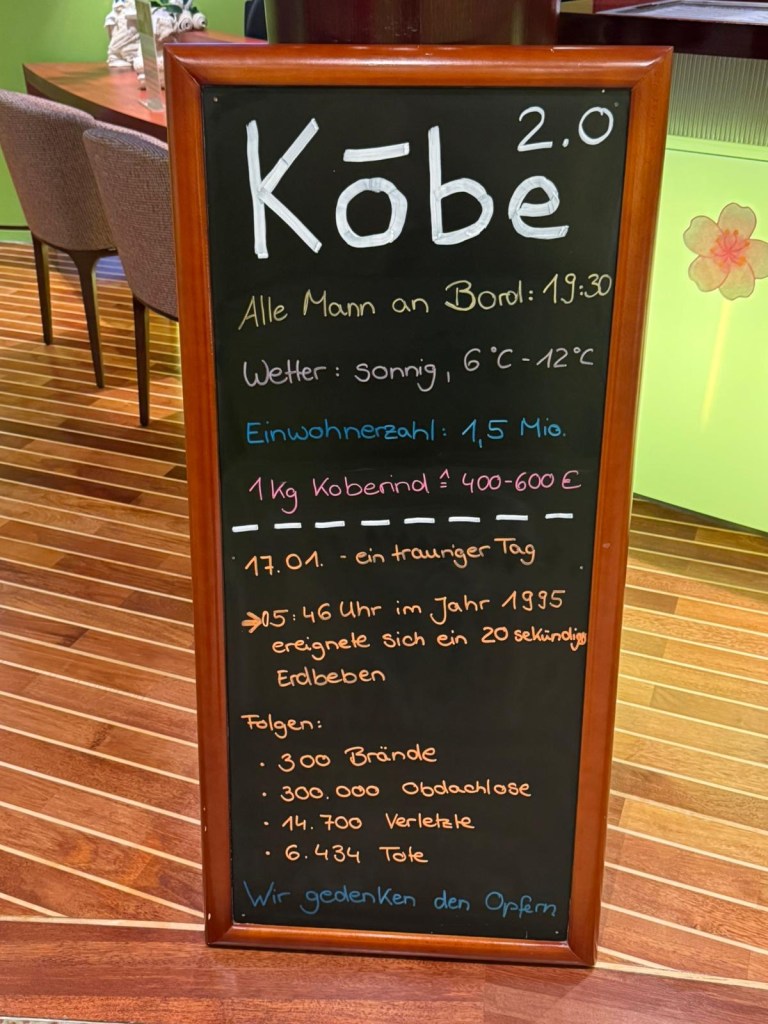 Kōbe 2.0
Alle Mann an Bord: 19:30
Wetter: sonnig, 6°C - 12°C
Einwohnerzahl: 1,5 Mio.
1 Kg Koberind ≙ 400-600 €
17.01. - ein trauriger Tag
→ 05:46 Uhr im Jahr 1995
ereignete sich ein 20 sekündiges
Erdbeben
Folgen:
· 300 Brände
· 300.000 Obdachlose
· 14.700 Verletzte
· 6.434 Tote
Wir gedenken den Opfern